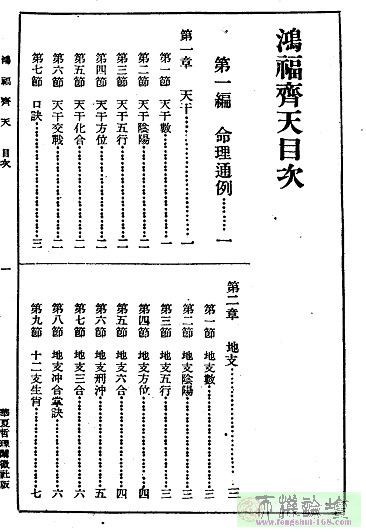 鴻福齊天目次
第一編　命理通例……一
第一章　天干……一
第一節　天干數……一
第二節　天干陰陽……一
第三節　天干五行……二
第四節　天干方位……二
第五節　天干化合……二
第六節　天干交戰……二
第七節　口訣……三
第二章　地支……三
第一節　地支數……三
第二節　地支陰陽……三
第三節　地支五行……三
第四節　地支方位……四
第五節　地支六合……四
第六節　地支刑沖……五
第七節　地支三合……六
第八節　地支冲合掌訣……六
第九節　十二支生肖……七
鴻福齊天　目次
一
華夏哲理闡微社版
www.fengshui-168.com